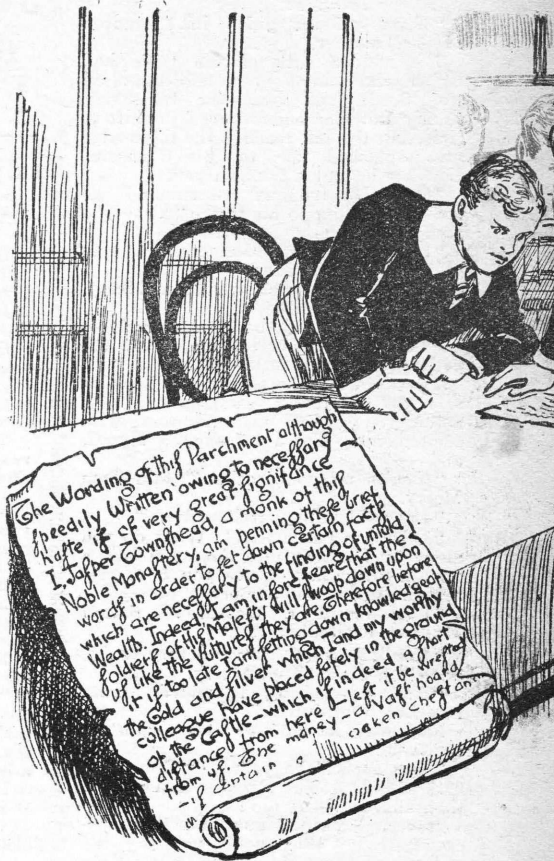 The Wording of thiſ Parchment although
ſpeedily Written owing to neceſſary
haſte iſ of very great ſignifance
I, Jaſper Townſhead, a monk of thiſ
Noble Monaſtery, am penning theſe brief
wordſ in order to ſet down certain factſ
which are neceſſary to the finding of untold
Wealth. Indeed I am in ſore feare that the
ſoldierſ of the Majeſty will ſwoop down upon
uſ like the Vultureſ they are. Therefore before
it iſ too late I am ſetting down knowledge of
the Gold and ſilver which I and my worthy
colleague have placed ſafely in the ground
of the Caſtle – which iſ indeed a ſhort
diſtance from here – leſt it be wreſted
from uſ. The money – a vaſt hoard
– iſ oaken cheſt an